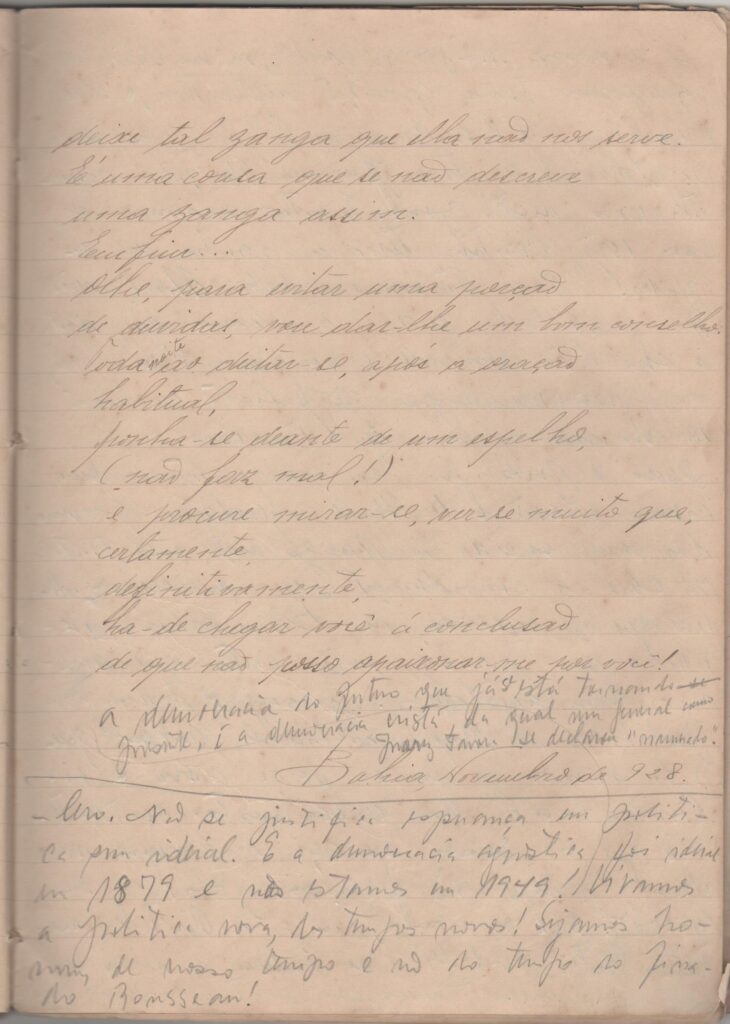 deixe tal zanga que ella não nos serve.
É uma cousa que se não descreve
uma zanga assim.
Emfim...
Olhe, para evitar uma porção
de duvidas, vou dar-lhe um bom conselho.
Toda noite ao deitar-se, após a oração
habitual,
ponha-se deante de um espelho,
(não faz mal!)
e procure mirar-se, ver-se muito que,
certamente,
definitivamente,
ha-de chegar você á conclusão
de que não posso apaixonar-me por você!
a democracia do futuro que já está tornando-se
presente, é a democracia cristã, da qual um general como
Juarez Tavora se declarou "namorado".
Bahia Novembro de 928.
-lero. Não se justifica esperança em politi-
ca sem ideial. E a democracia agnóstica foi ideial
em 1879 e nós estamos em 1949! Vivamos
a politica nova, dos tempos novos! Sejamos ho-
mens de nosso tempo e não do tempo do fina-
do Rousseau!